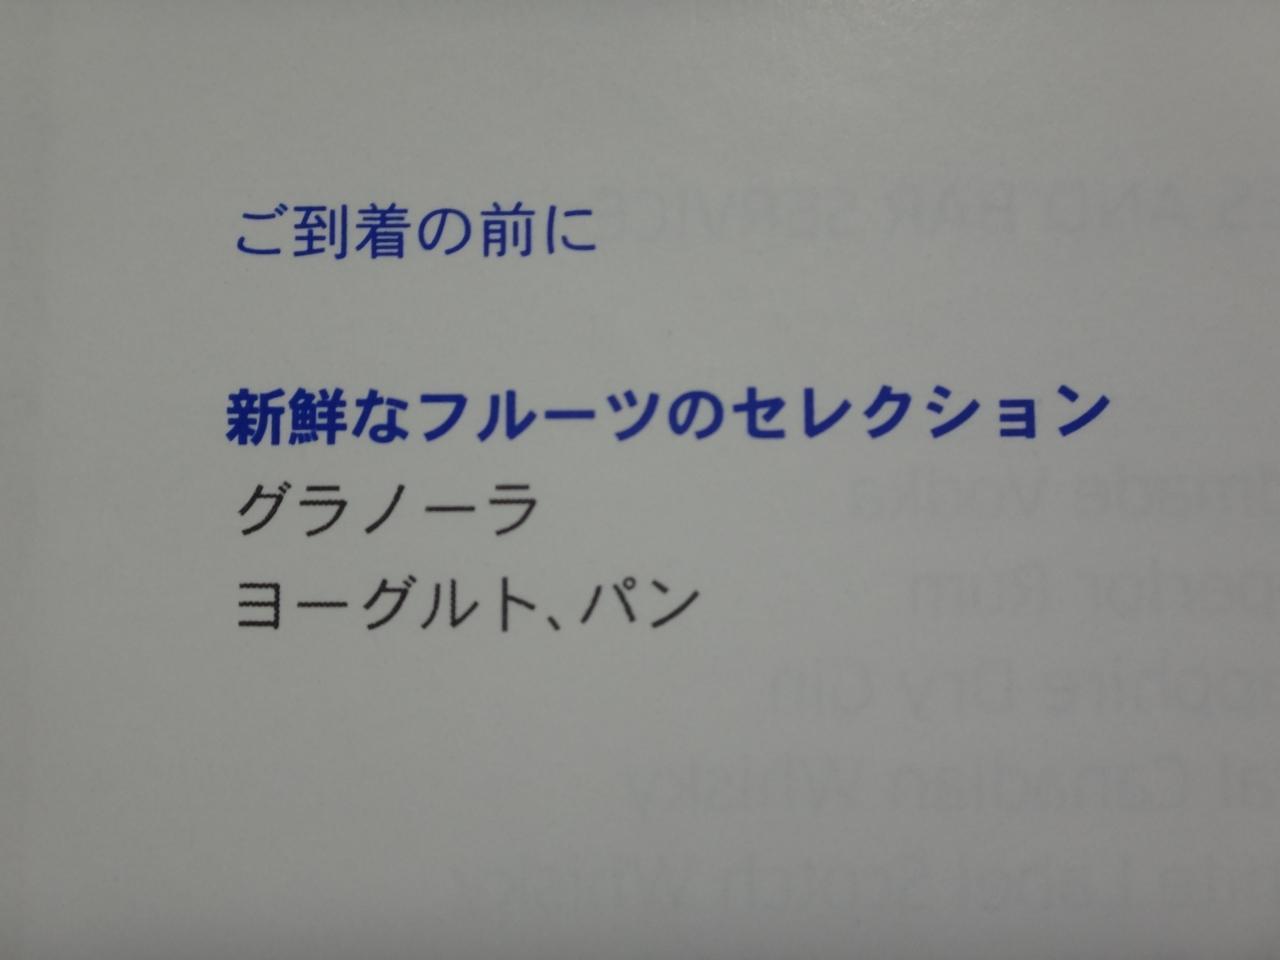 ご到着の前に
新鮮なフルーツのセレクション
グラノーラ
ヨーグルト、パン